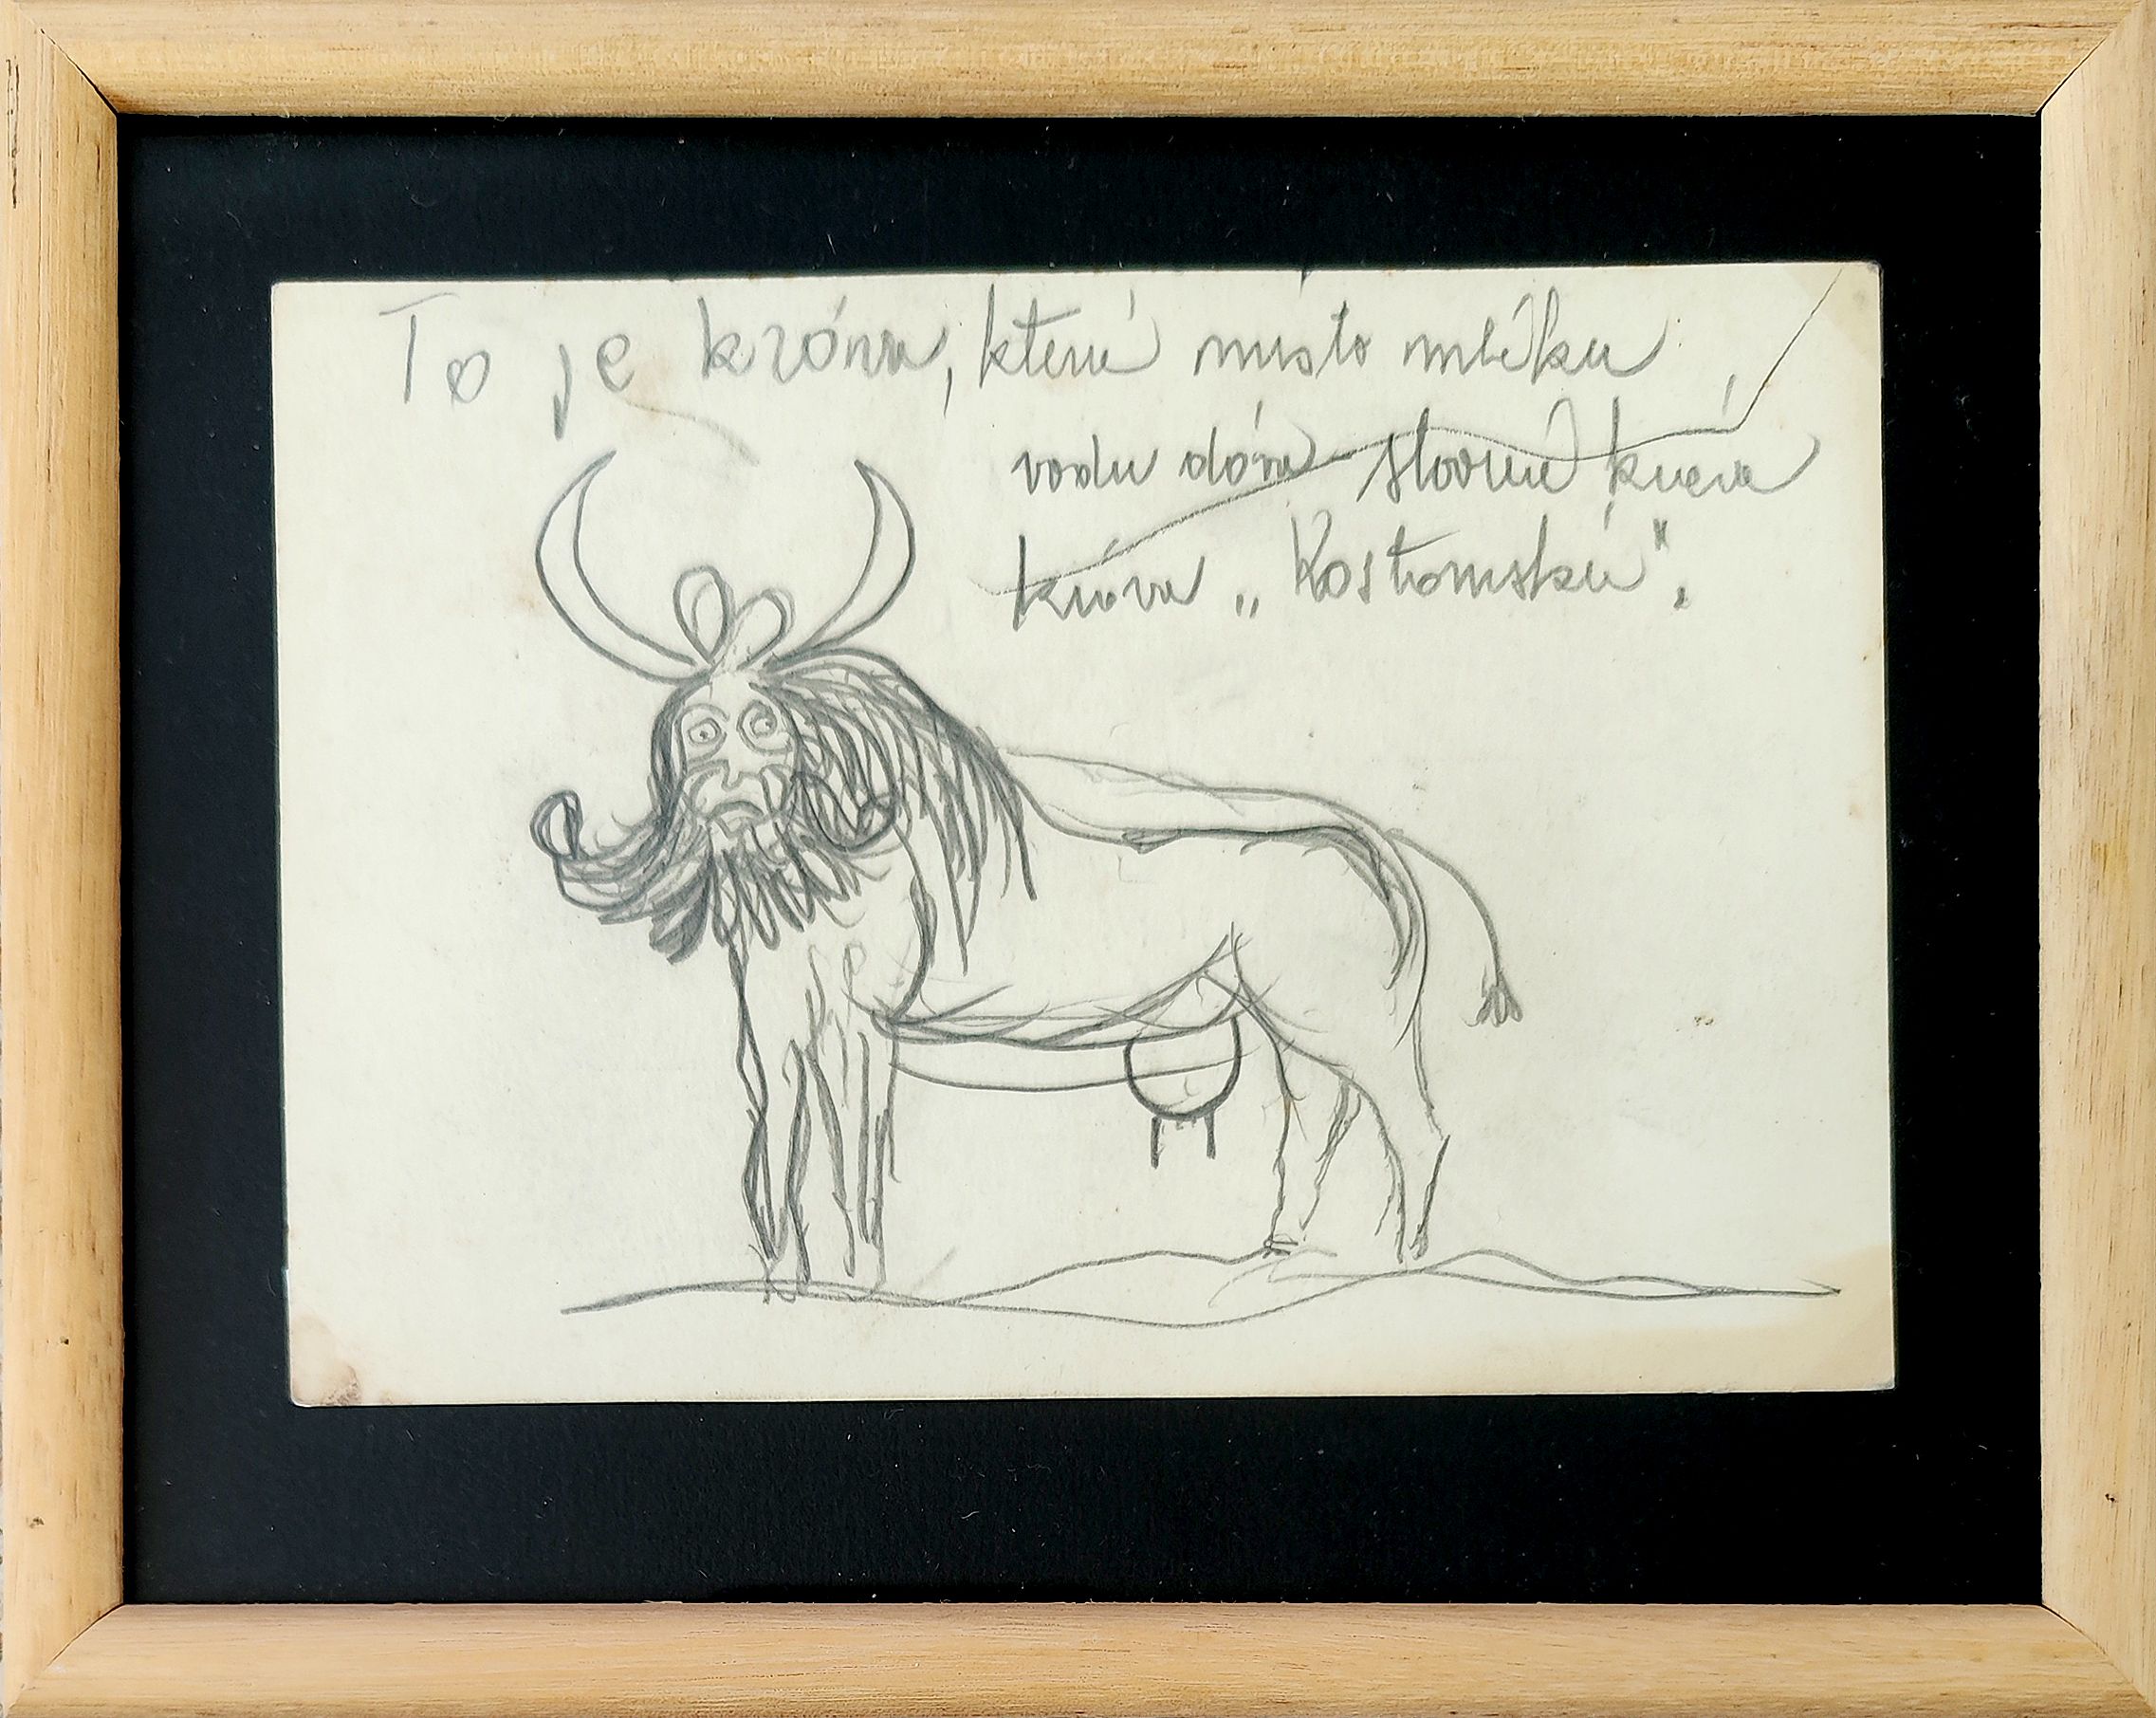 To je króva, která místo mléka
vodu dává slavná kráva
kráva „Kostomská".